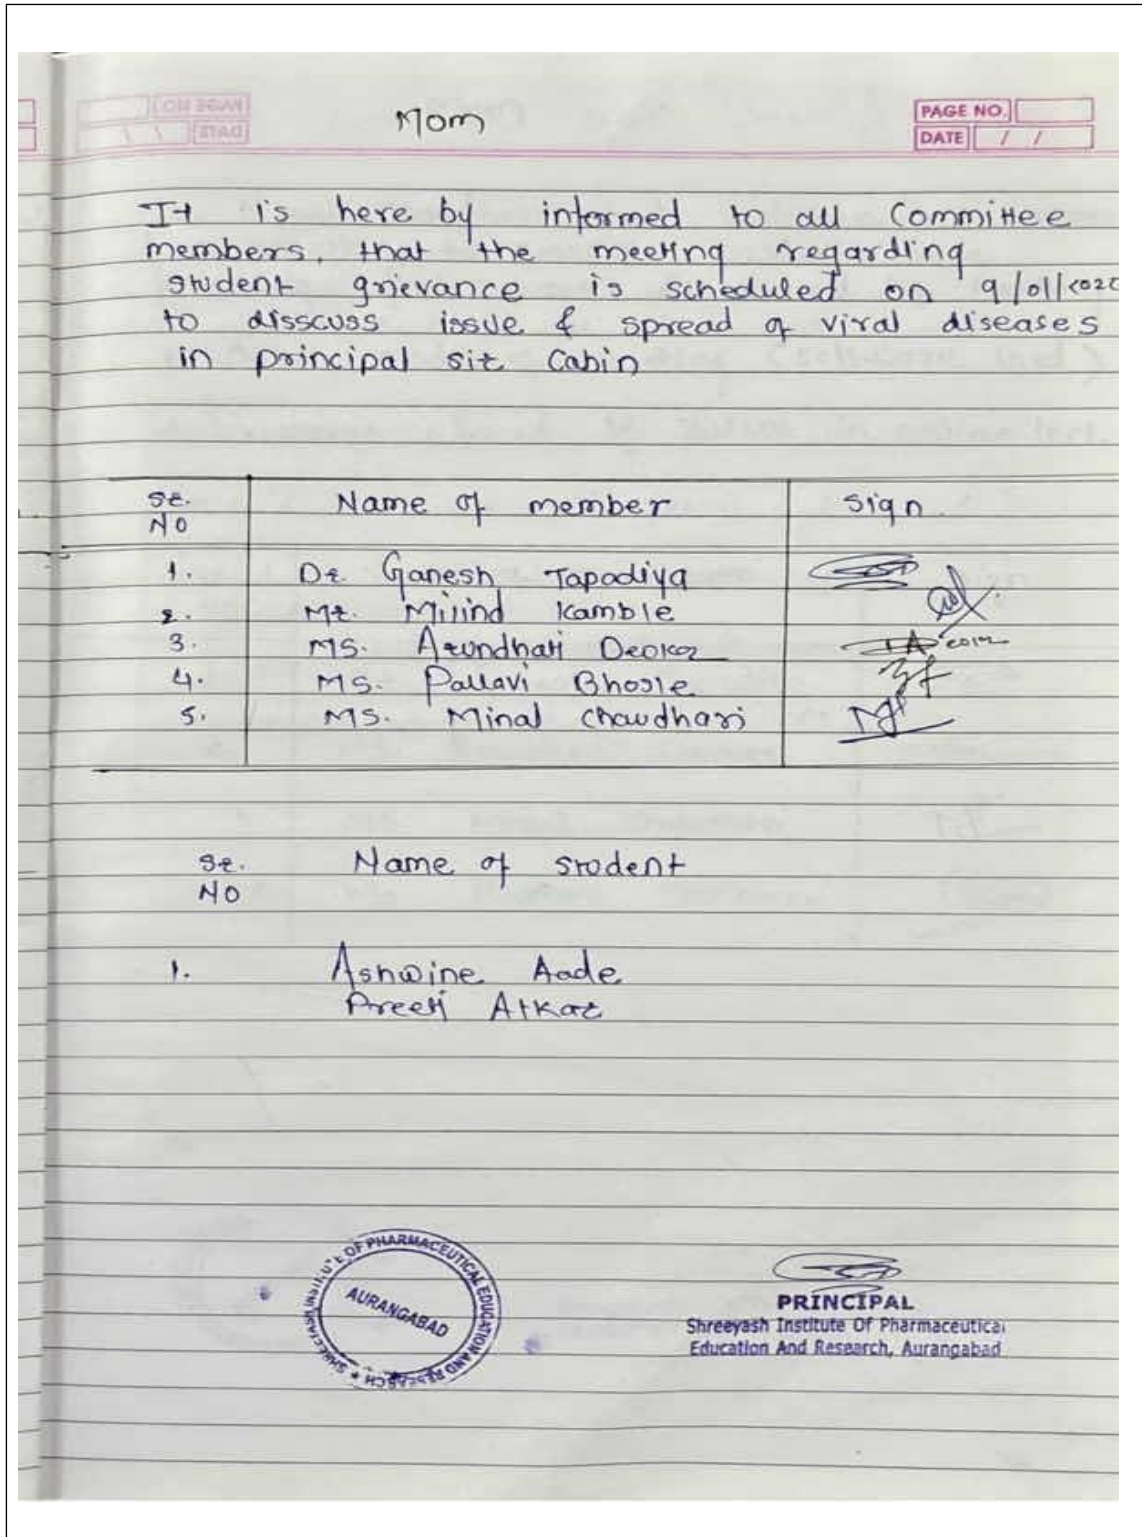 Mom
PAGE NO.
DATE / /
It is here by informed to all Committee
members, that the meeting regarding
student grievance is scheduled on 9/01/2020
to disscuss issue & spread of viral diseases
in principal sir Cabin
Sr. No Name of member sign
1. Dr. Ganesh Tapadiya
2. Mr. Milind Kamble
3. MS. Arundhati Deokar
4. MS. Pallavi Bhosle
5. MS. Minal Chaudhari
Sr. No Name of student
1. Ashwine Aade
Preeti Atkar
SHREEYASH INSTITUTE OF PHARMACEUTICAL EDUCATION AND RESEARCH
AURANGABAD
PRINCIPAL
Shreeyash Institute Of Pharmaceutical
Education And Research, Aurangabad